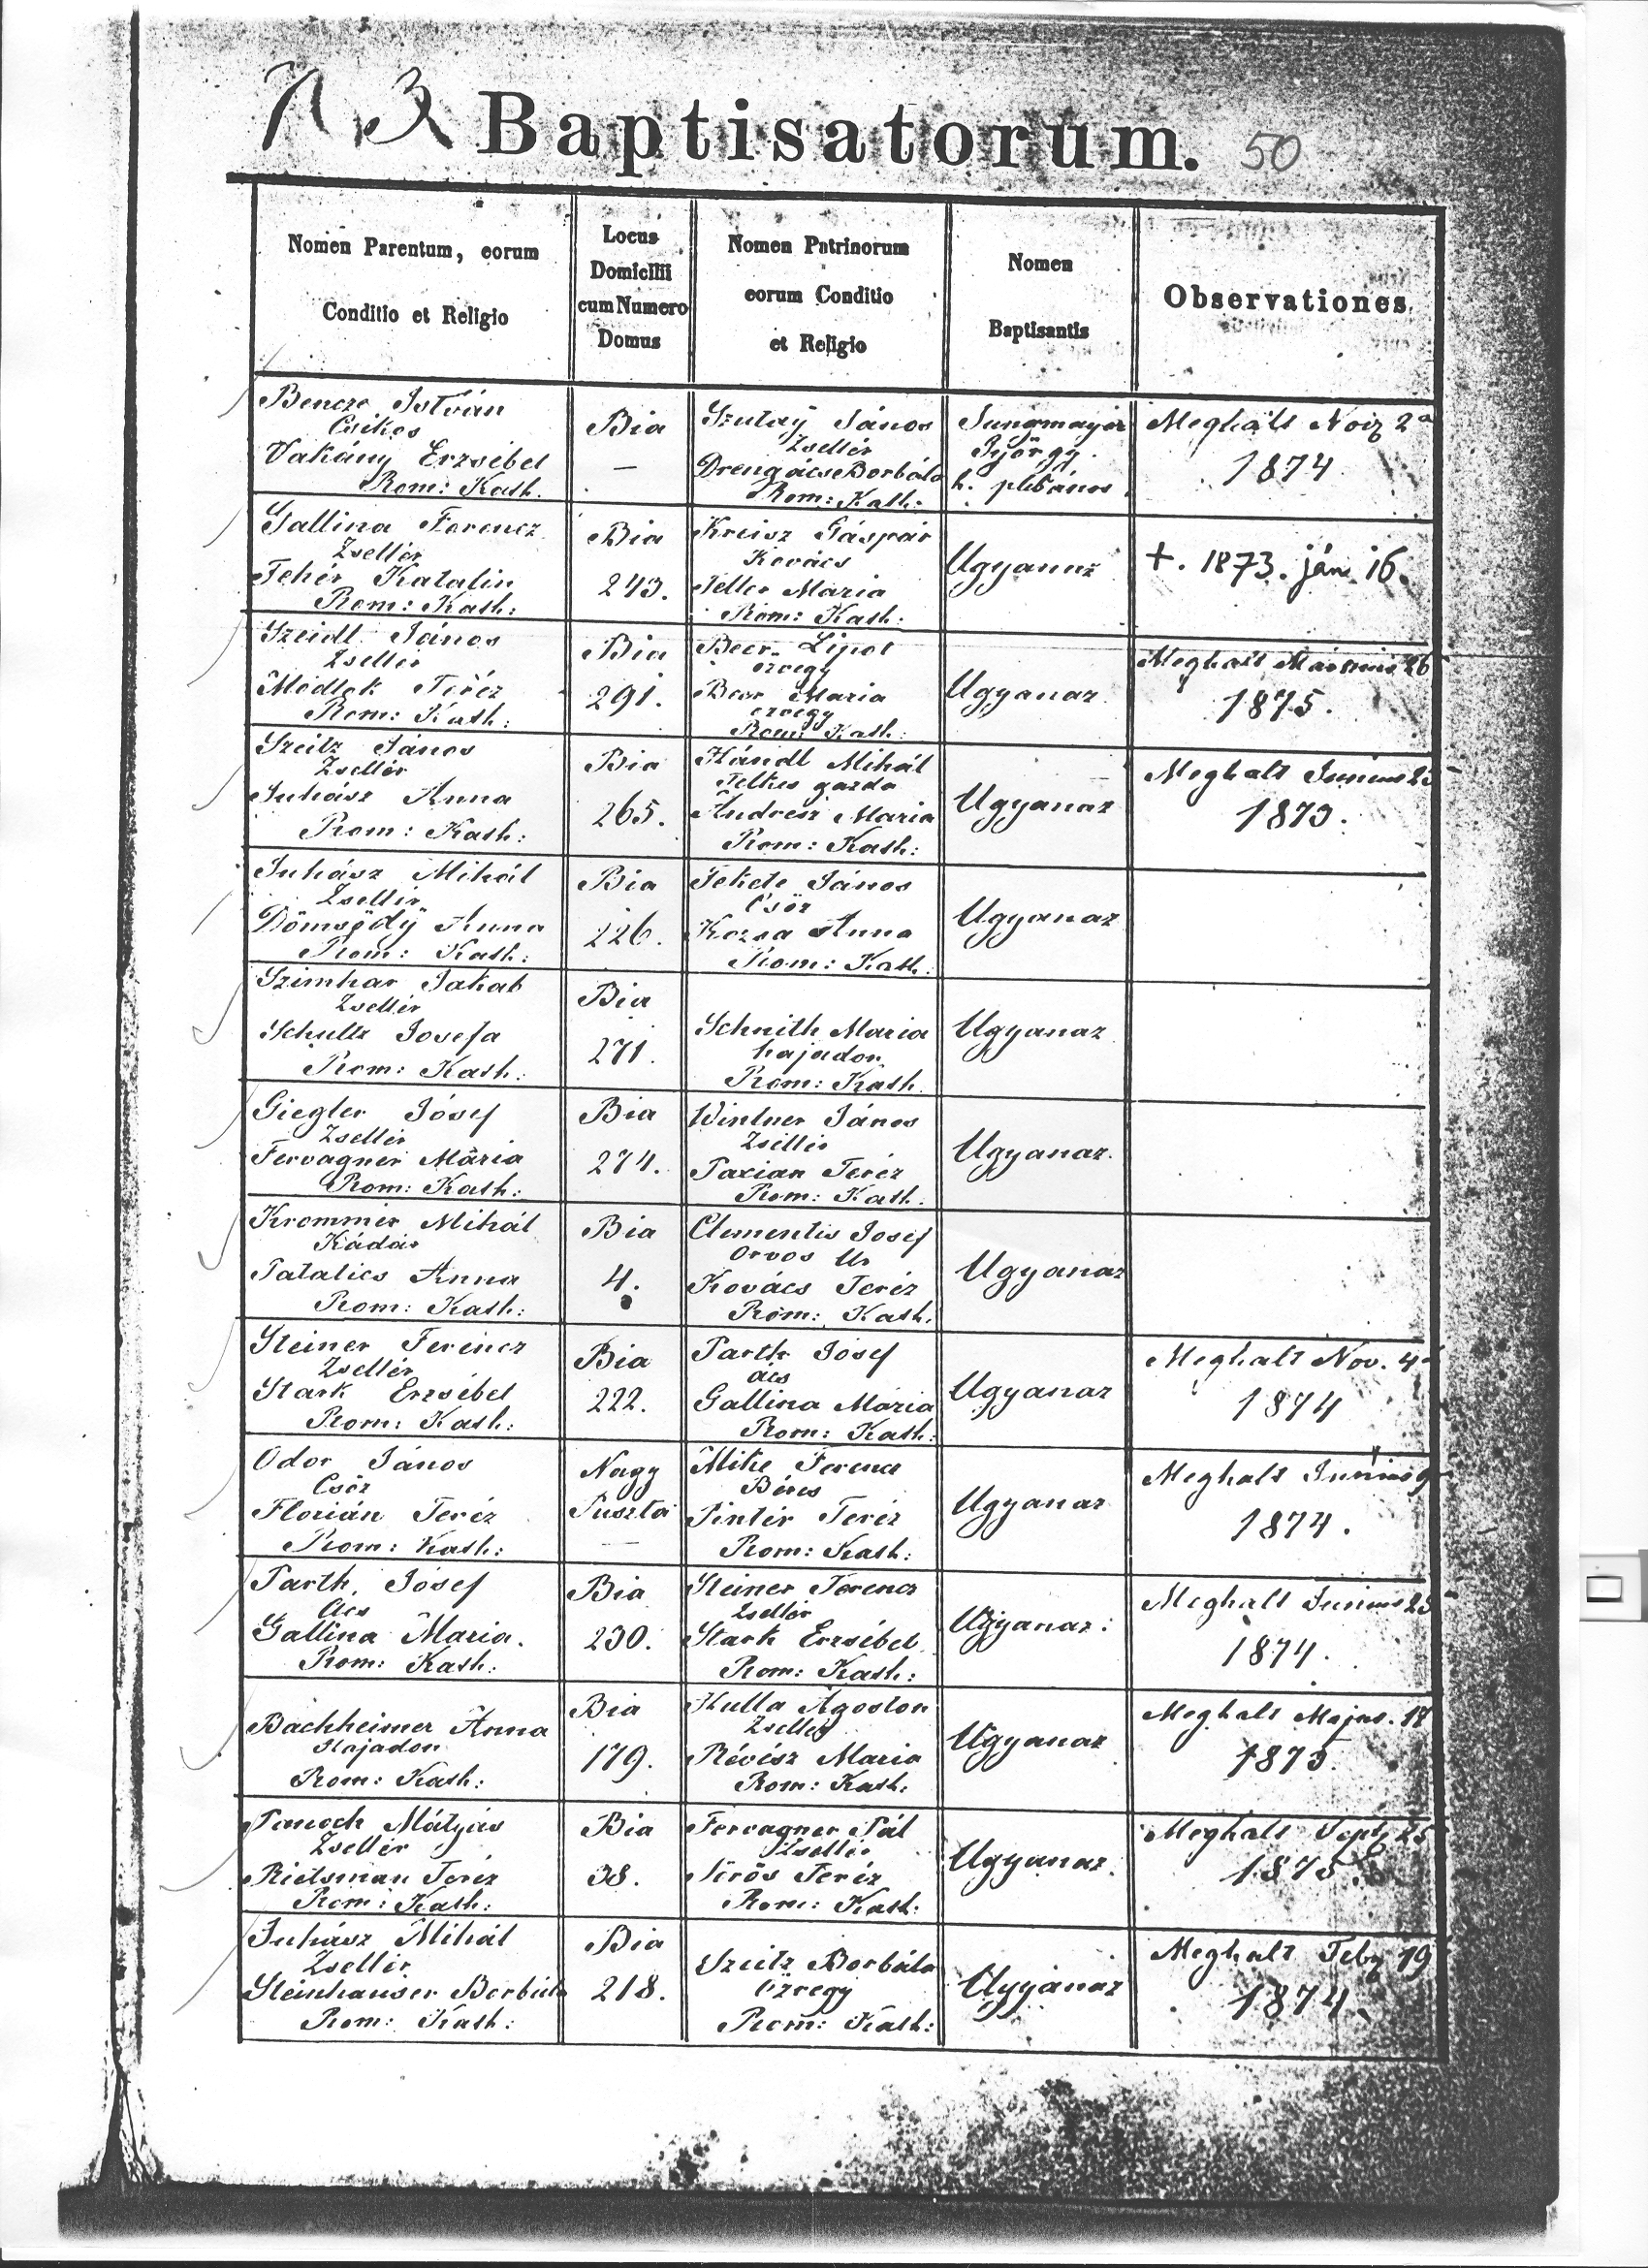 Baptisatorum. 50
Nomen Parentum, eorum
Conditio et Religio
Locus
Domicilii
cum Numero
Domus
Nomen Patrinorum
eorum Conditio
et Religio
Nomen
Baptisantis
Observationes
Bencze István
Csikos
Vakány Erzsébet
Rom: Kath.
Bia
—
Szulaÿ János
Zsellér
Borbála
Rom: Kath:
Jungmayer
György
h. plébános
Meghalt
1874
Gallina Ferencz
Zsellér
Fehér Katalin
Rom: Kath:
Bia
243.
Kreisz Gáspár
Kovács
Feller Maria
Rom: Kath:
Ugyanaz
+. 1873. ján. 16.
Szeidl János
Zsellér
Médlek Teréz
Rom: Kath:
Bia
291.
Beer Lipot
özvegy
Beer Maria
özvegy
Rom: Kath:
Ugyanaz
Meghalt 26
1875.
Szeitz János
Zsellér
Juhász Anna
Rom: Kath:
Bia
265.
Händl Mihál
Telkes gazda
Maria
Rom: Kath:
Ugyanaz
Meghalt Junius
1873.
Juhász Mihál
Zsellér
Dömsödÿ Anna
Rom: Kath:
Bia
226.
Fekete János
Csösz
Kozsa Anna
Rom: Kath:
Ugyanaz
Szimhar Jakab
Zsellér
Schultz Josefa
Rom: Kath:
Bia
271.
Schnith Maria
hajadon
Rom: Kath.
Ugyanaz
Giegler Jósef
Zsellér
Fervagner Mária
Rom: Kath:
Bia
274.
Wintner János
Zsellér
Paxian Teréz
Rom: Kath.
Ugyanaz.
Krommer Mihál
Kádár
Patalics Anna
Rom: Kath:
Bia
4.
Clementis Josef
Orvos Ur
Kovács Teréz
Rom: Kath.
Ugyanaz
Steiner Ferencz
Zsellér
Stark Erzsébet
Rom: Kath:
Bia
222.
Parth Josef
ács
Gallina Mária
Rom: Kath:
Ugyanaz
Meghalt Nov. 4
1874
Odor János
Csösz
Florián Teréz
Rom: Kath:
Nagy
Puszta
—
Mike Ferencz
Béres
Pintér Teréz
Rom: Kath:
Ugyanaz
Meghalt Junius 9
1874.
Parth, Jósef
Ács
Gallina Maria.
Rom: Kath:
Bia
230.
Steiner Ferencz
Zsellér
Stark Erzsébet
Rom: Kath:
Ugyanaz:
Meghalt Junius
1874.
Bachheimer Anna
Hajadon
Rom: Kath:
Bia
179.
Kulla Agoston
Zsellér
Révész Maria
Rom: Kath:
Ugyanaz
Meghalt Majus. 17
1873.
Panoch Mátyás
Zsellér
Rietsman Teréz
Rom: Kath:
Bia
38.
Fervagner Pál
Zsellér
Vörös Teréz
Rom: Kath:
Ugyanaz.
Meghalt 25
1875
Juhász Mihál
Zsellér
Steinhauser Borbála
Rom: Kath:
Bia
218.
Szeitz Borbála
özvegy
Rom: Kath:
Ugyanaz
Meghalt Feby 19
1874.